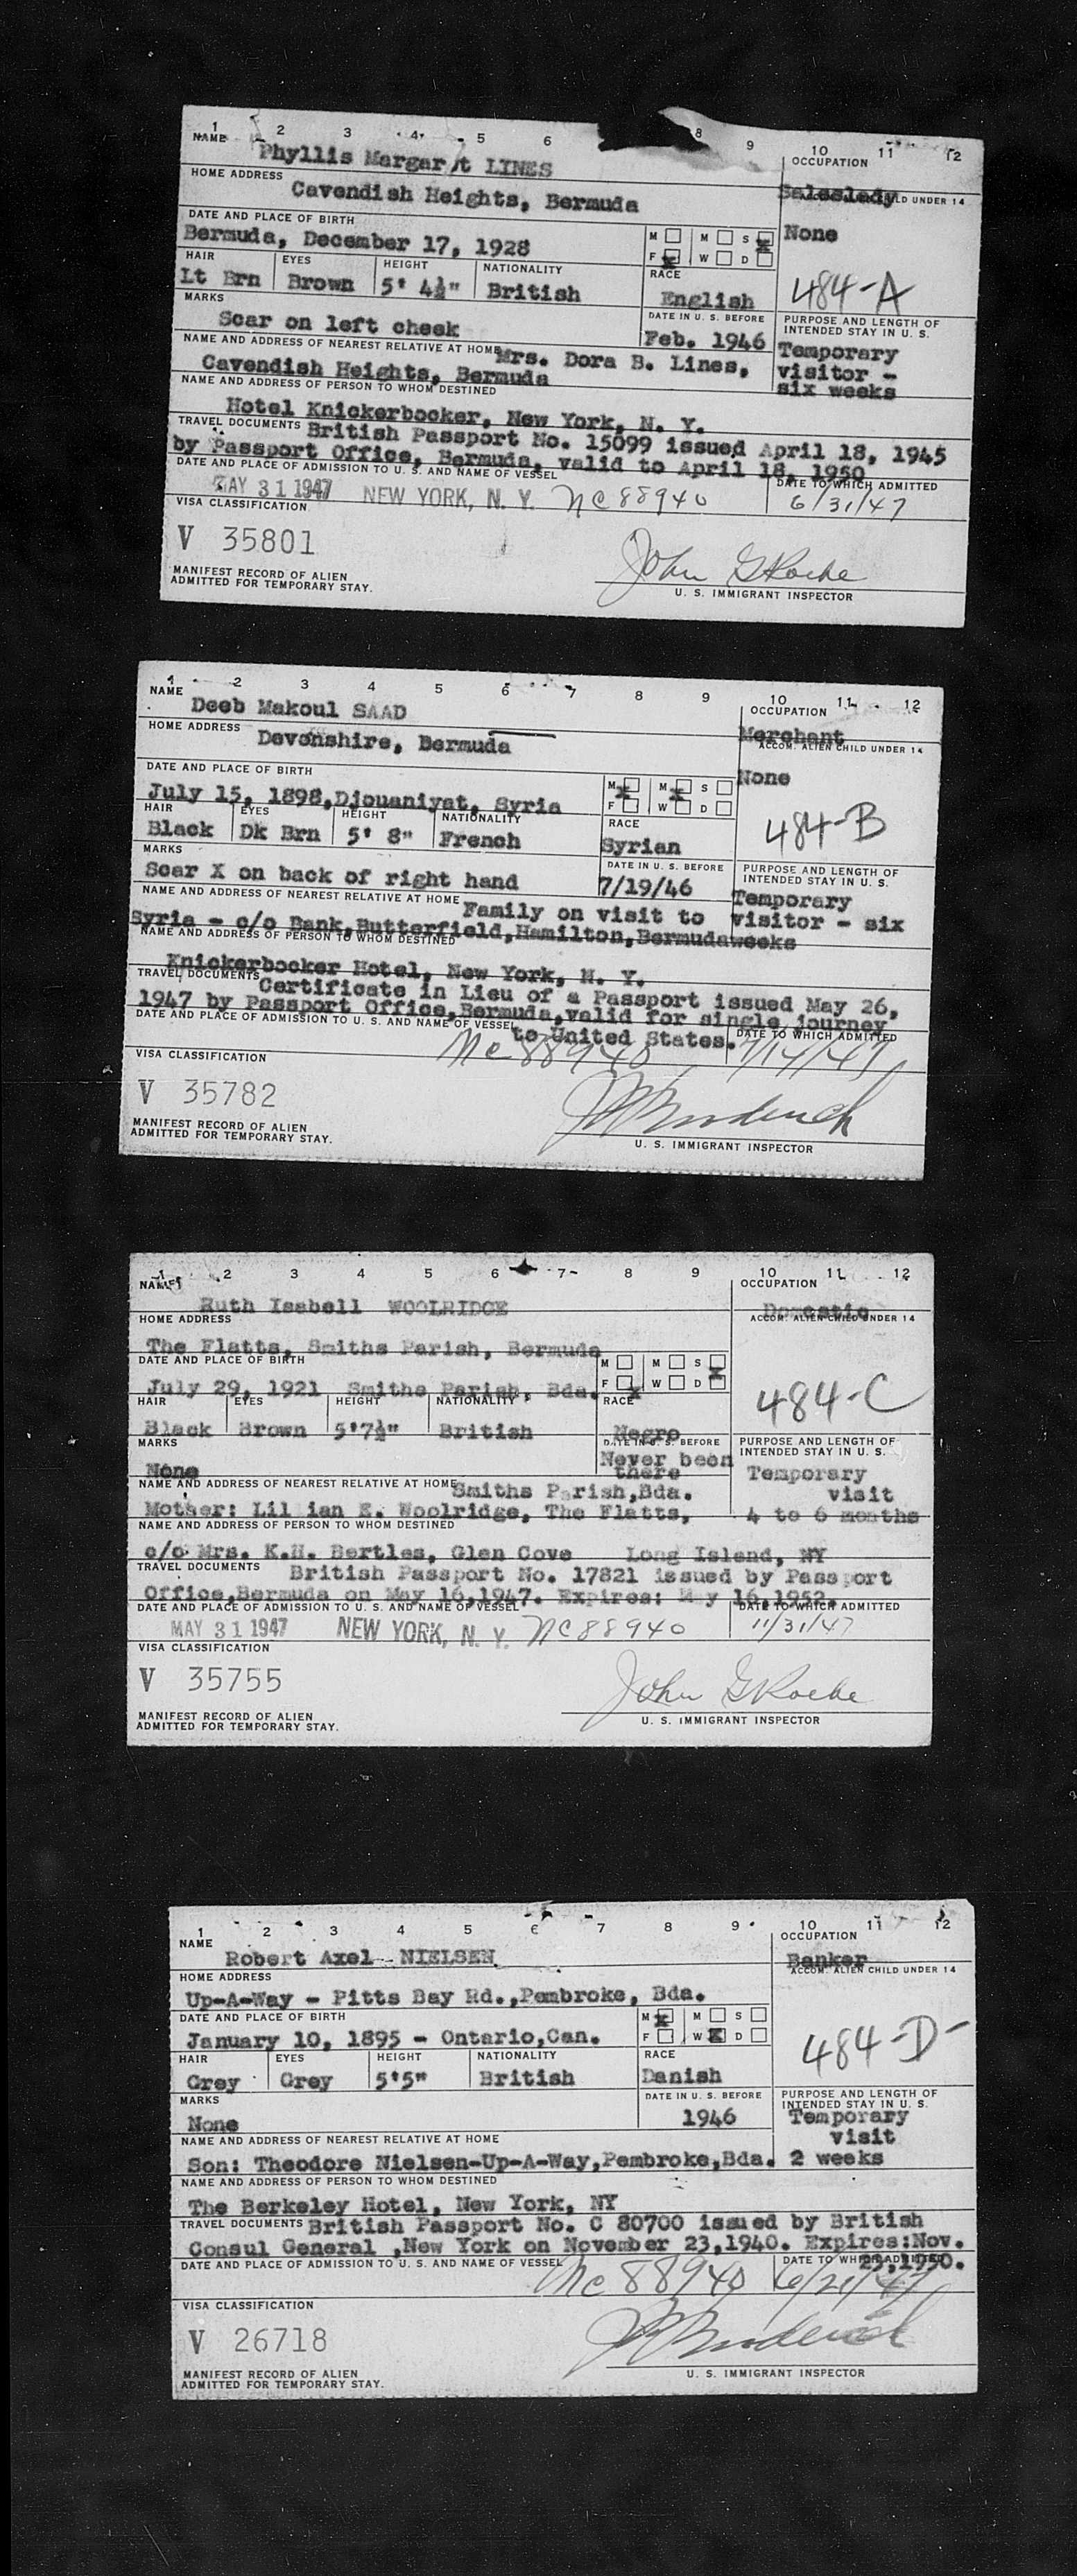 1 2 3 4 5 6 8 9 10 11 12
NAME OCCUPATION
Phyllis Margar t LINES Saleslady
HOME ADDRESS LD UNDER 14
Cavendish Heights, Bermuda None
DATE AND PLACE OF BIRTH M M S
Bermuda, December 17, 1928 F W D
HAIR EYES HEIGHT NATIONALITY RACE
Lt Brn Brown 5' 4½" British English 484-A
MARKS DATE IN U. S. BEFORE PURPOSE AND LENGTH OF INTENDED STAY IN U. S.
Scar on left cheek Feb. 1946 Temporary
NAME AND ADDRESS OF NEAREST RELATIVE AT HOME Mrs. Dora B. Lines, visitor -
Cavendish Heights, Bermuda six weeks
NAME AND ADDRESS OF PERSON TO WHOM DESTINED
Hotel Knickerbocker, New York, N. Y.
TRAVEL DOCUMENTS British Passport No. 15099 issued April 18, 1945
by Passport Office, Bermuda, valid to April 18, 1950
DATE AND PLACE OF ADMISSION TO U. S. AND NAME OF VESSEL DATE TO WHICH ADMITTED
MAY 31 1947 NEW YORK, N. Y. NC88940 6/31/47
VISA CLASSIFICATION
V 35801
John G Roche
MANIFEST RECORD OF ALIEN
ADMITTED FOR TEMPORARY STAY.
U. S. IMMIGRANT INSPECTOR
1 2 3 4 5 6 7 8 9 10 11 12
NAME OCCUPATION
Deeb Makoul SAAD Merchant
HOME ADDRESS ACCOM. ALIEN CHILD UNDER 14
Devonshire, Bermuda None
DATE AND PLACE OF BIRTH M M S
July 15, 1898, Djouaniyat, Syria F W D
HAIR EYES HEIGHT NATIONALITY RACE
Black Dk Brn 5' 8" French Syrian 484-B
MARKS DATE IN U. S. BEFORE PURPOSE AND LENGTH OF INTENDED STAY IN U. S.
Scar X on back of right hand 7/19/46 Temporary
NAME AND ADDRESS OF NEAREST RELATIVE AT HOME Family on visit to visitor - six
Syria - c/o Bank, Butterfield, Hamilton, Bermuda weeks
NAME AND ADDRESS OF PERSON TO WHOM DESTINED
Knickerbocker Hotel, New York, N. Y.
TRAVEL DOCUMENTS Certificate in Lieu of a Passport issued May 26,
1947 by Passport Office, Bermuda, valid for single journey
DATE AND PLACE OF ADMISSION TO U. S. AND NAME OF VESSEL to United States. DATE TO WHICH ADMITTED
NC 88940 7/14/47
VISA CLASSIFICATION
V 35782
MANIFEST RECORD OF ALIEN
ADMITTED FOR TEMPORARY STAY.
U. S. IMMIGRANT INSPECTOR
1 2 3 4 5 6 7 8 9 10 11 12
NAME OCCUPATION
Ruth Isabell WOOLRIDGE Domestic
HOME ADDRESS ACCOM. ALIEN CHILD UNDER 14
The Flatts, Smiths Parish, Bermuda
DATE AND PLACE OF BIRTH M M S
July 29, 1921 Smiths Parish, Bda. F W D
HAIR EYES HEIGHT NATIONALITY RACE
Black Brown 5'7½" British Negro 484-C
MARKS DATE IN U. S. BEFORE PURPOSE AND LENGTH OF INTENDED STAY IN U. S.
None Never been there Temporary
NAME AND ADDRESS OF NEAREST RELATIVE AT HOME Smiths Parish, Bda. visit
Mother: Lil ian E. Woolridge, The Flatts, 4 to 6 months
NAME AND ADDRESS OF PERSON TO WHOM DESTINED
c/o Mrs. K.H. Bertles, Glen Cove Long Island, NY
TRAVEL DOCUMENTS British Passport No. 17821 issued by Passport
Office, Bermuda on May 16, 1947. Expires: May 16, 1952.
DATE AND PLACE OF ADMISSION TO U. S. AND NAME OF VESSEL DATE TO WHICH ADMITTED
MAY 31 1947 NEW YORK, N. Y. NC88940 11/31/47
VISA CLASSIFICATION
V 35755
John G Roche
MANIFEST RECORD OF ALIEN
ADMITTED FOR TEMPORARY STAY.
U. S. IMMIGRANT INSPECTOR
1 2 3 4 5 6 7 8 9 10 11 12
NAME OCCUPATION
Robert Axel NIELSEN Banker
HOME ADDRESS ACCOM. ALIEN CHILD UNDER 14
Up-A-Way - Pitts Bay Rd., Pembroke, Bda.
DATE AND PLACE OF BIRTH M M S
January 10, 1895 - Ontario, Can. F W D
HAIR EYES HEIGHT NATIONALITY RACE
Grey Grey 5'5" British Danish 484-D-
MARKS DATE IN U. S. BEFORE PURPOSE AND LENGTH OF INTENDED STAY IN U. S.
None 1946 Temporary
NAME AND ADDRESS OF NEAREST RELATIVE AT HOME visit
Son: Theodore Nielsen-Up-A-Way, Pembroke, Bda. 2 weeks
NAME AND ADDRESS OF PERSON TO WHOM DESTINED
The Berkeley Hotel, New York, NY
TRAVEL DOCUMENTS British Passport No. C 80700 issued by British
Consul General ,New York on November 23, 1940. Expires: Nov.
DATE AND PLACE OF ADMISSION TO U. S. AND NAME OF VESSEL DATE TO WHICH ADMITTED 23, 1950.
NC 88940 6/21/47
VISA CLASSIFICATION
V 26718
MANIFEST RECORD OF ALIEN
ADMITTED FOR TEMPORARY STAY.
U. S. IMMIGRANT INSPECTOR